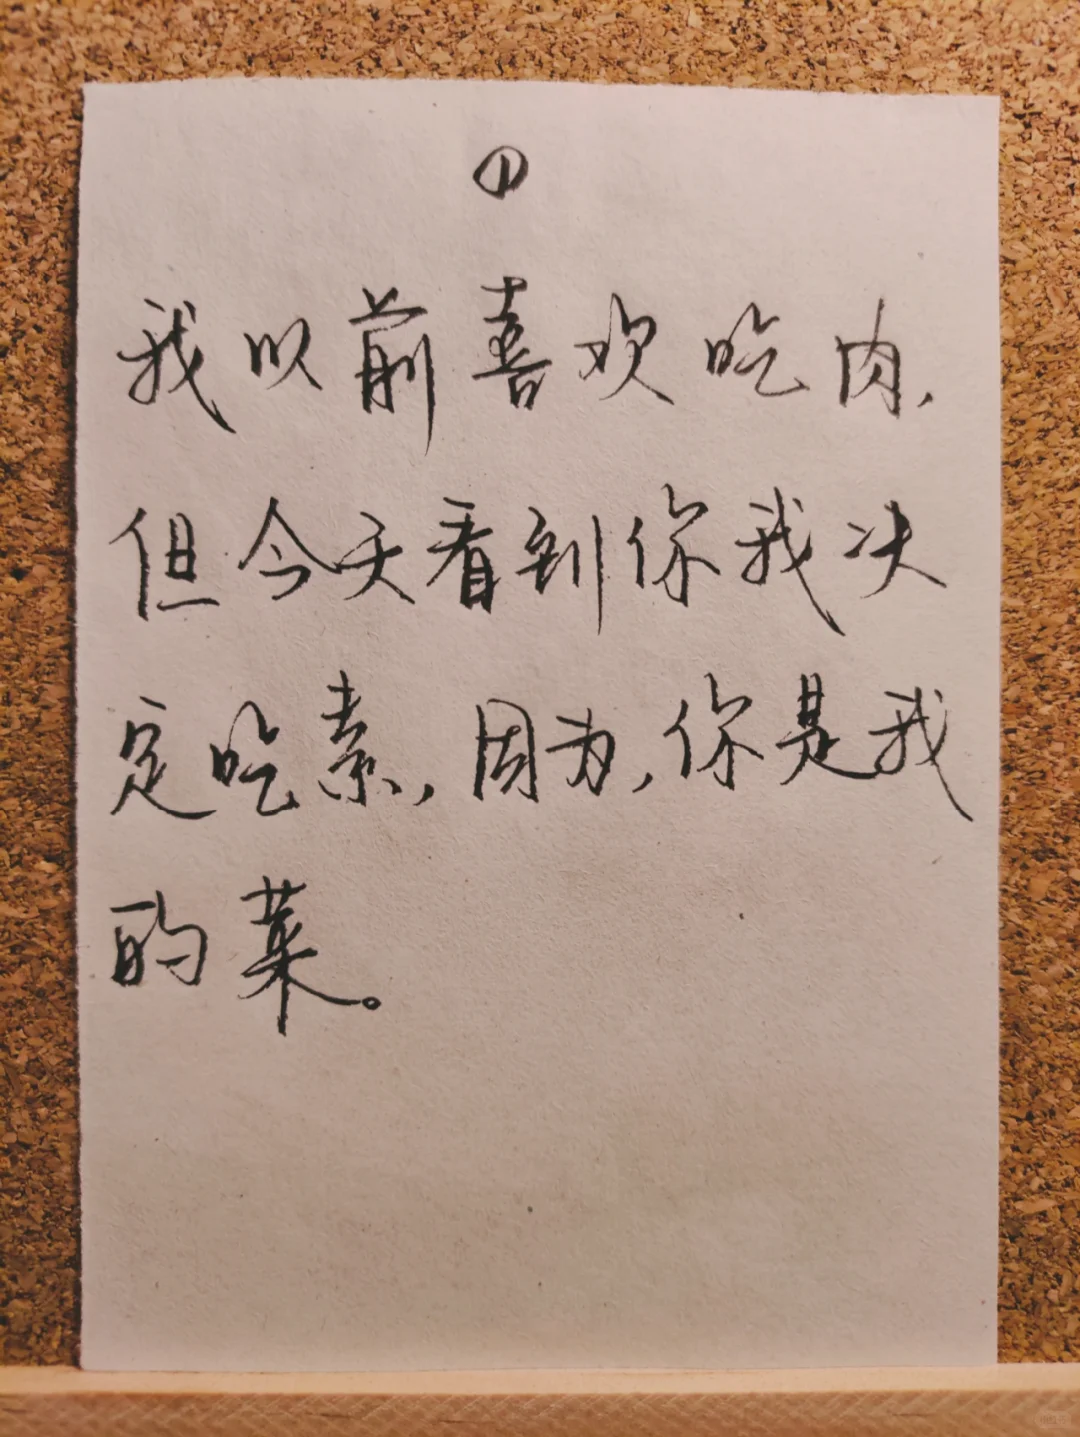 ①
我以前喜欢吃肉,
但今天看到你我决
定吃素,因为,你是我
的菜。
小红书